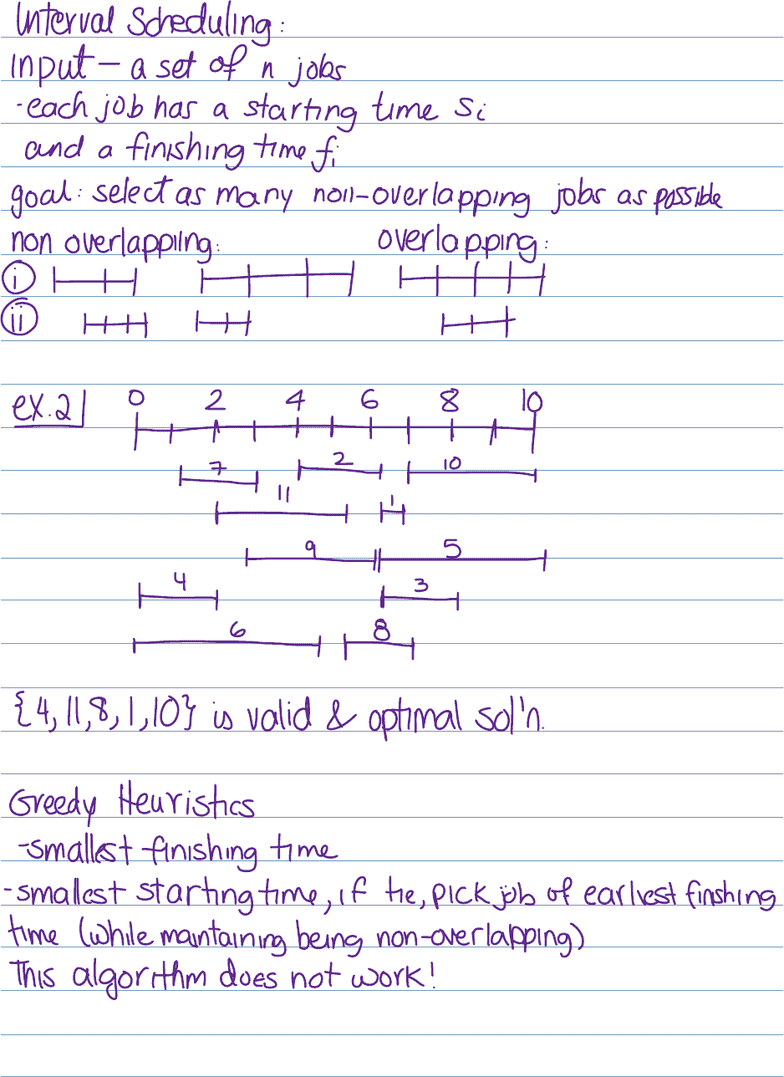 Interval Scheduling:
input - a set of n jobs
-each job has a starting time si
and a finishing time fi
goal: select as many non-overlapping jobs as possible
non overlappiing: overlapping:
i
ii
ex.2 0 2 4 6 8 10
7 2 10
11 1
9 5
4 3
6 8
{4,11,8,1,10} is valid & optimal sol'n.
Greedy Heuristics
-smallest finishing time
-smallest starting time, if tie, pick job of earliest finshing
time (while maintaining being non-overlapping)
This algorithm does not work!